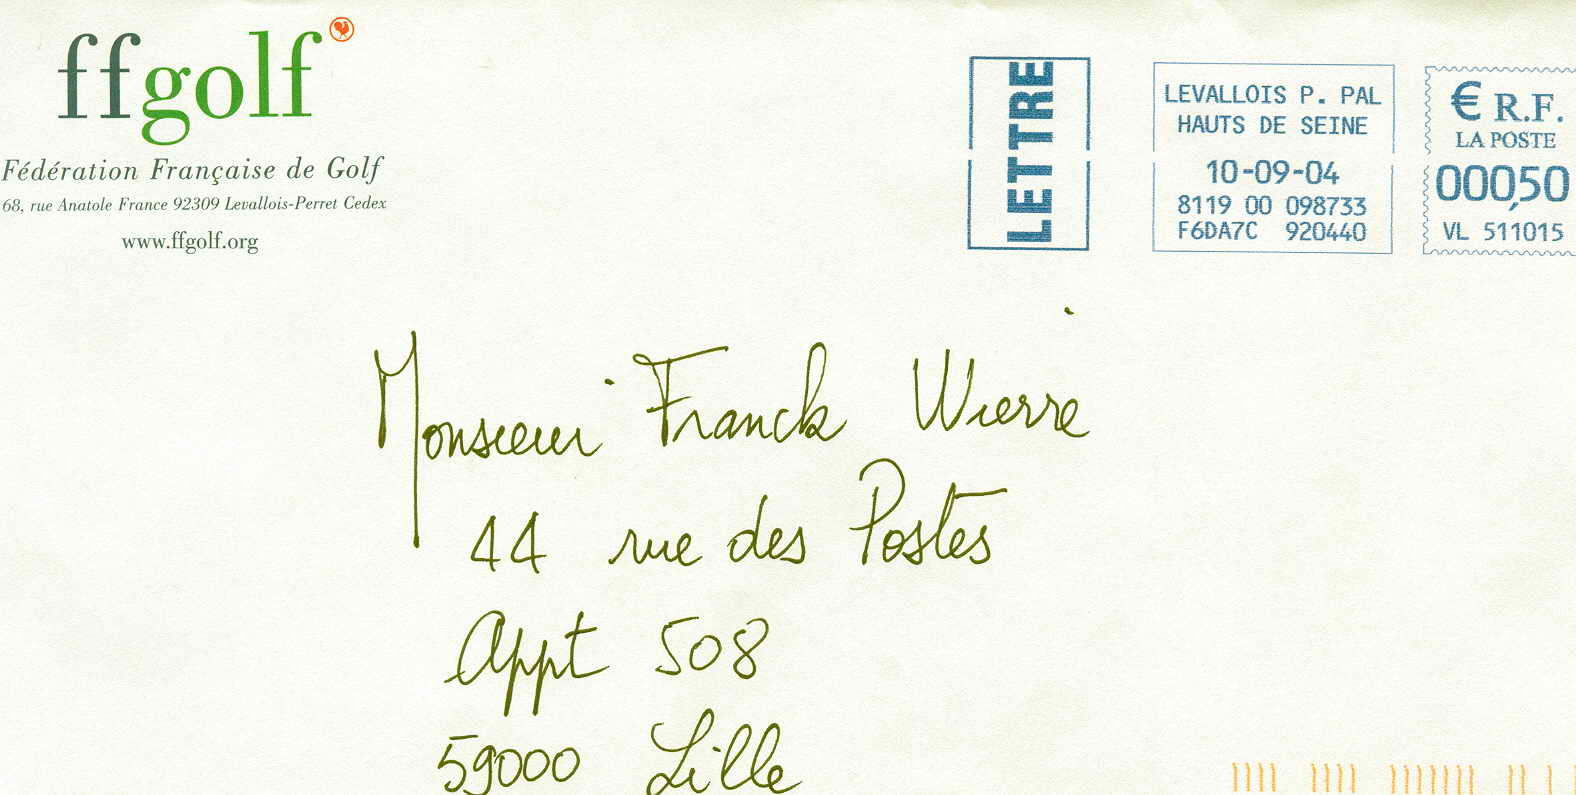 ffgolf
Fédération Française de Golf
68, rue Anatole France 92309 Levallois-Perret Cedex
www.ffgolf.org
LETTRE
LEVALLOIS P. PAL
HAUTS DE SEINE
10-09-04
8119 00 098733
F6DA7C 920440
€ R.F.
LA POSTE
000,50
VL 511015
Monsieur Franck Wierre
44 rue des Postes
Appt 508
59000 Lille